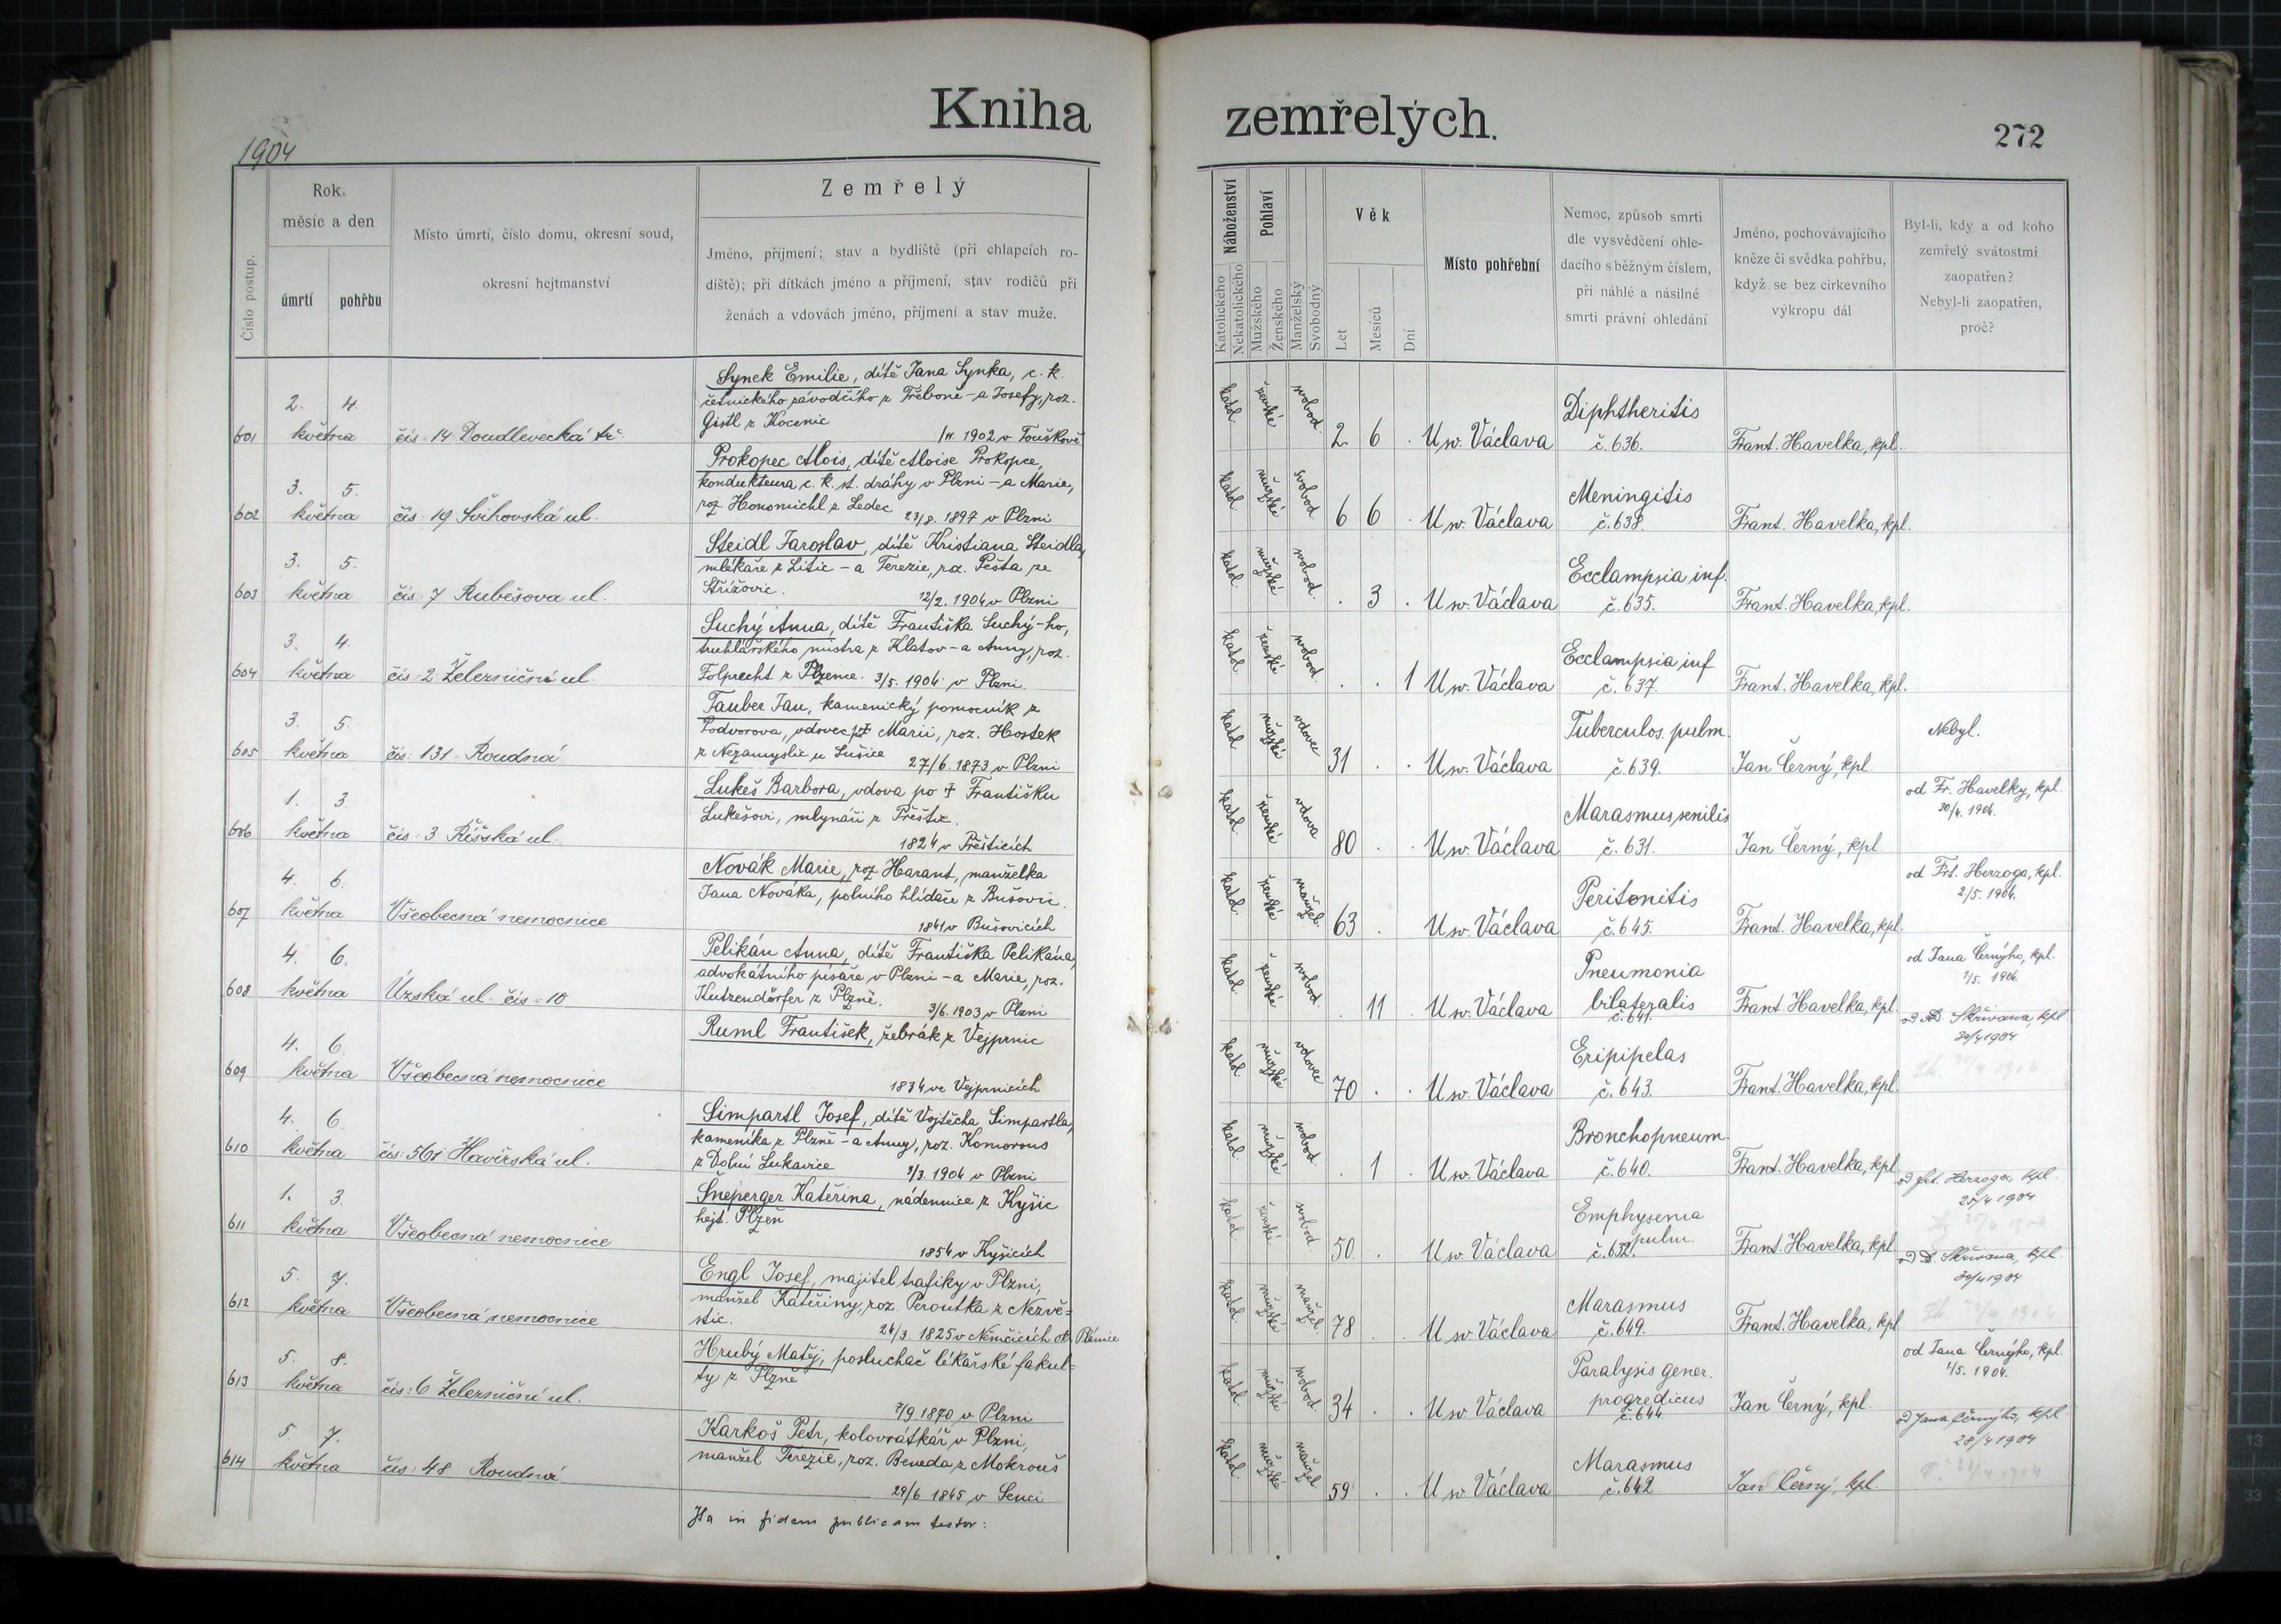 Kniha zemřelých.
272
1904
Číslo postup.
Rok,
měsíc a den
úmrtí
pohřbu
Místo úmrtí, číslo domu, okresní soud,
okresní hejtmanství
Zemřelý
Jméno, příjmení; stav a bydliště (při chlapcích ro-
diště); při dítkách jméno a příjmení, stav rodičů při
ženách a vdovách jméno, příjmení a stav muže.
Náboženství
Katolického
Nekatolického
Pohlaví
Mužského
Ženského
Manželský
Svobodný
Věk
Let
Mesíců
Dní
Místo pohřební
Nemoc, způsob smrti
dle vysvědčení ohle-
dacího s běžným číslem,
při náhlé a násilné
smrti právní ohledání
Jméno, pochovávajícího
kněze či svědka pohřbu,
když se bez církevního
výkropu dál
Byl-li, kdy a od koho
zemřelý svátostmi
zaopatřen?
Nebyl-li zaopatřen,
proč?
601
2. 4.
května
čís. 14 Doudlevecká tř.
Synek Emilie, dítě Jana Synka, c. k.
četnického závodčího z Třeboně - a Josefy, roz.
Gistl z Kocenic
1902 v Touškově
katol. ženské svobod. 2 6 .
U sv. Václava
Diphtheritis
č. 636.
Frant. Havelka, kpl.
602
3. 5.
května
čís. 19 Švihovská ul.
Prokopec Alois, dítě Aloise Prokopce,
kondukteura c. k. st. dráhy v Plzni - a Marie,
roz. Honomichl z Ledec
23/8. 1897 v Plzni
katol. mužské svobod. 6 6 .
U sv. Václava
Meningitis
č. 638.
Frant. Havelka, kpl.
603
3. 5.
května
čís. 7 Rubešova ul.
Steidl Jaroslav, dítě Kristiana Steidla,
mlékaře z Litic - a Terezie, roz. Pešta ze
Střížovic.
12/2. 1904 v Plzni
katol. mužské svobod. . 3 .
U sv. Václava
Ecclampsia inf.
č. 635.
Frant. Havelka, kpl.
604
3. 4.
května
čís. 2 Železniční ul.
Suchý Anna, dítě Františka Suchý-ho,
truhlářského mistra z Klatov - a Anny, roz.
Folprecht z Plzence. 3/5. 1904 v Plzni
katol. ženské svobod. . . 1
U sv. Václava
Ecclampsia inf
č. 637.
Frant. Havelka, kpl.
605
3. 5.
května
čís. 131 Roudná
Tauber Jan, kamenický pomocník z
Podvorova, vdovec po † Marii, roz. Hostek
z Nezamyslic u Sušice
27/6. 1873 v Plzni
katol. mužské vdovec 31 . .
U sv. Václava
Tuberculos. pulm.
č. 639.
Jan Černý, kpl.
Nebyl.
606
1. 3.
května
čís. 3 Říšská ul.
Lukeš Barbora, vdova po † Františku
Lukešovi, mlynáři z Přeštic.
1824 v Přešticích
katol. ženské vdova 80 . .
U sv. Václava
Marasmus senilis
č. 631.
Jan Černý, kpl.
od Fr. Havelky, kpl.
30/4. 1904.
607
4. 6.
května
Všeobecná nemocnice
Novák Marie, roz. Harant, manželka
Jana Nováka, polního hlídače z Bušovic.
1841 v Bušovicích
katol. ženské manžel. 63 .
U sv. Václava
Peritonitis
č. 645.
Frant. Havelka, kpl.
od Frt. Herzoga, kpl.
2/5. 1904.
608
4. 6.
května
Úzská ul. čís. 10
Pelikán Anna, dítě Františka Pelikána,
advokátního písaře v Plzni - a Marie, roz.
Kutzendörfer z Plzně.
3/6. 1903 v Plzni
katol. ženské svobod. . 11
U sv. Václava
Pneumonia
bilateralis
č. 641.
Frant. Havelka, kpl.
od Jana Černýho, kpl.
1/5. 1904.
609
4. 6.
května
Všeobecná nemocnice
Ruml František, žebrák z Vejprnic
1834 ve Vejprnicích
katol. mužské vdovec 70 . .
U sv. Václava
Eripipelas
č. 643.
Frant. Havelka, kpl.
od D. Skřivana, kpl
30/4 1904
610
4. 6.
května
čís. 561 Havířská ul.
Simpartl Josef, dítě Vojtěcha Simpartla,
kameníka z Plzně - a Anny, roz. Komorous
z Dolní Lukavice
3/3. 1904 v Plzni
katol. mužské svobod. . 1 .
U sv. Václava
Bronchopneum.
č. 640.
Frant. Havelka, kpl.
611
1. 3.
května
Všeobecná nemocnice
Šneperger Kateřina, nádennice z Kyšic
hejt. Plzeň
1854 v Kyšicích
katol. ženské svobod 50 .
U sv. Václava
Emphysema
pulm.
č. 632.
Frant. Havelka, kpl
od Frt. Herzoga, kpl.
25/4 1904
612
5. 7.
května
Všeobecná nemocnice
Engl Josef, majitel trafiky v Plzni,
manžel Kateřiny, roz. Peroutka z Nezvě=
stic.
24/3. 1825 v Němčicích ok. Plánice
katol. mužské manžel. 78 . .
U sv Václava
Marasmus
č. 649.
Frant. Havelka, kpl
od D. Skřivana, kpl.
30/4 1904
613
5. 8.
května
čís. 6 Železniční ul.
Hrubý Matěj, posluchač lékařské fakul=
ty z Plzně
7/9. 1870 v Plzni
katol. mužské svobod. 34 . .
U sv Václava
Paralysis gener.
progredicus
č. 644.
Jan Černý, kpl.
od Jana Černýho, kpl.
1/5. 1904.
614
5. 7.
května
čís. 48 Roudná
Karkoš Petr, kolovrátkář v Plzni,
manžel Terezie, roz. Beneda z Mokrouš
29/6 1845 v Senci
katol. mužské manžel 59 . .
U sv. Václava
Marasmus
č. 642
Jan Černý, kpl.
od Jana Černýho, kpl
28/4 1904
Ita in fidem publicam testor: